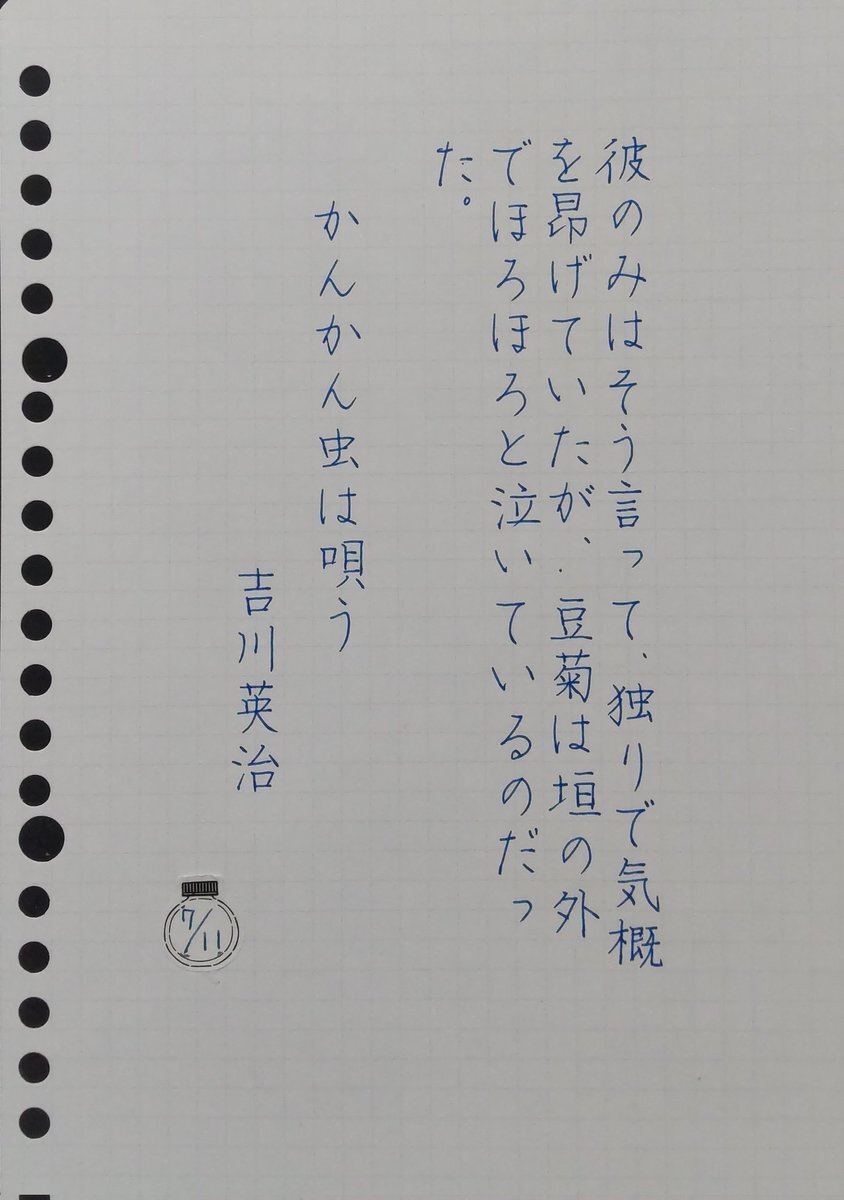 彼のみはそう言って、独りで気概
を昂げていたが、豆菊は垣の外
でほろほろと泣いているのだっ
た。
かんかん虫は唄う
吉川英治
7/11